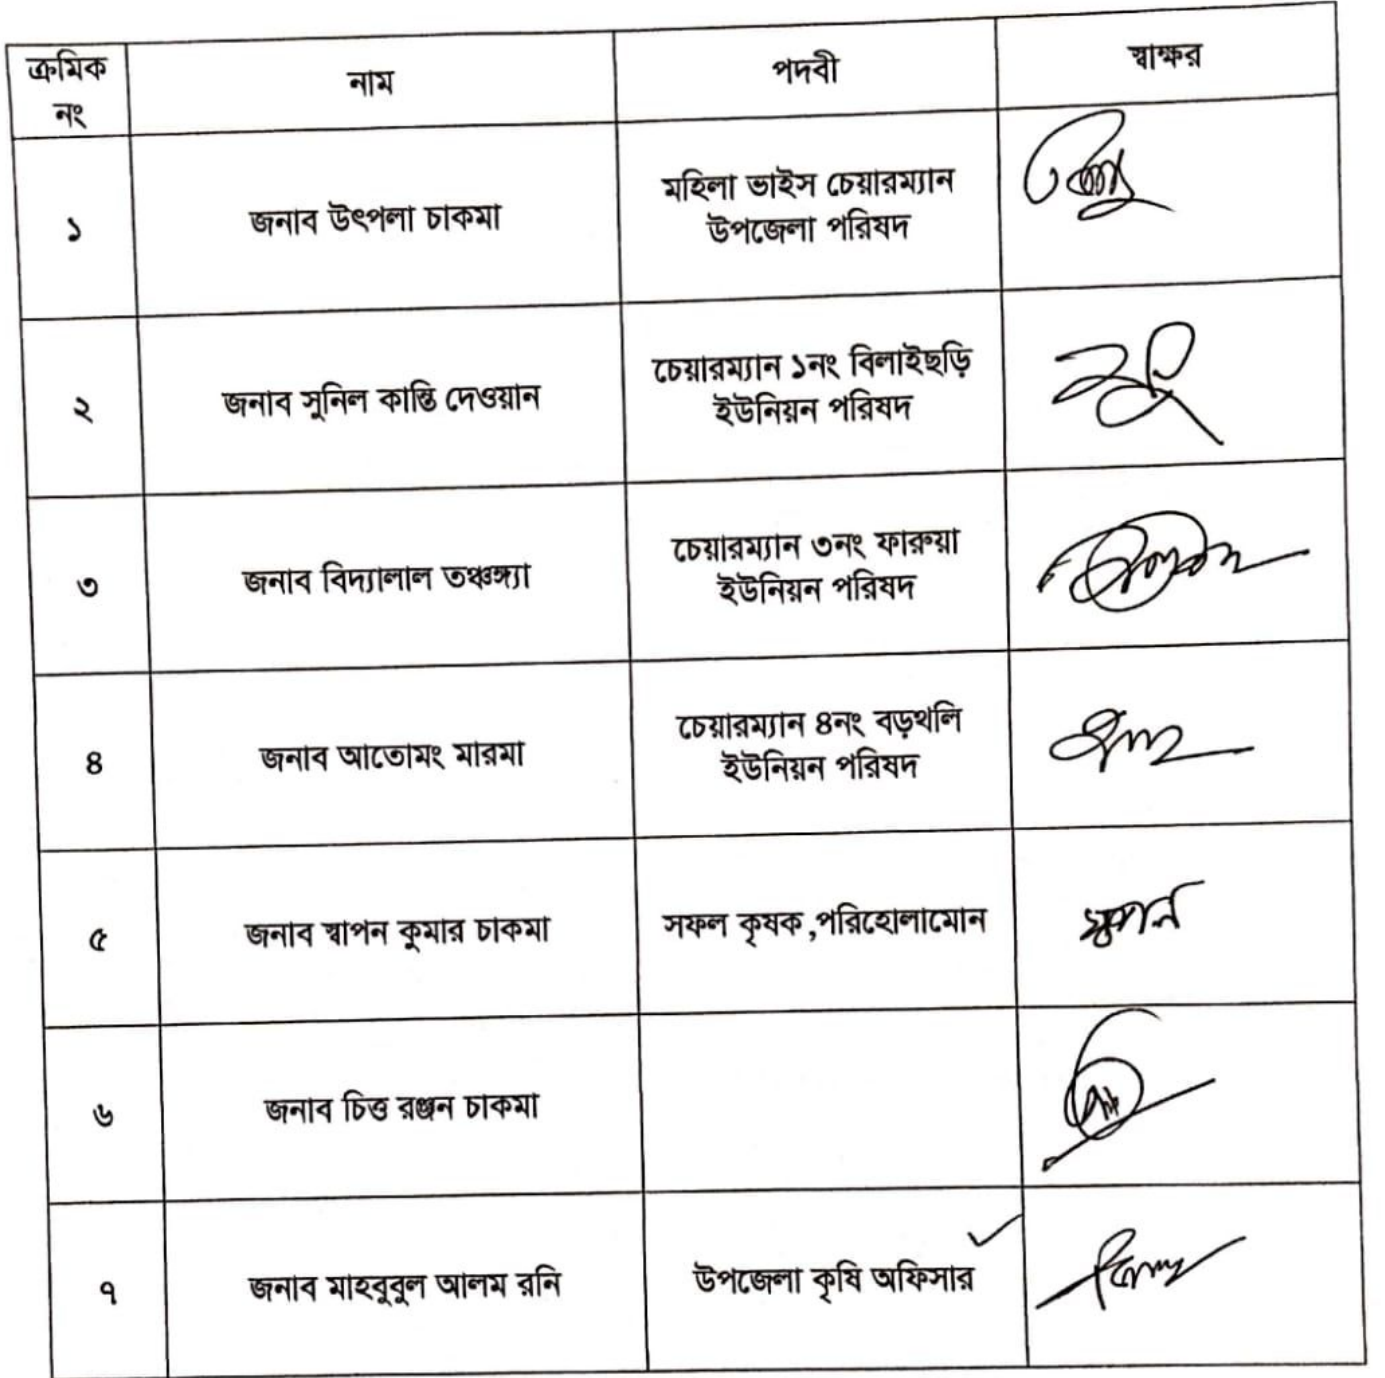 ক্রমিক নং নাম পদবী স্বাক্ষর
১ জনাব উৎপলা চাকমা মহিলা ভাইস চেয়ারম্যান
উপজেলা পরিষদ
২ জনাব সুনিল কান্তি দেওয়ান চেয়ারম্যান ১নং বিলাইছড়ি
ইউনিয়ন পরিষদ
৩ জনাব বিদ্যালাল তঞ্চঙ্গ্যা চেয়ারম্যান ৩নং ফারুয়া
ইউনিয়ন পরিষদ
৪ জনাব আতোমং মারমা চেয়ারম্যান ৪নং বড়থলি
ইউনিয়ন পরিষদ
৫ জনাব স্বাপন কুমার চাকমা সফল কৃষক,পরিহোলামোন
৬ জনাব চিত্ত রঞ্জন চাকমা
৭ জনাব মাহবুবুল আলম রনি উপজেলা কৃষি অফিসার